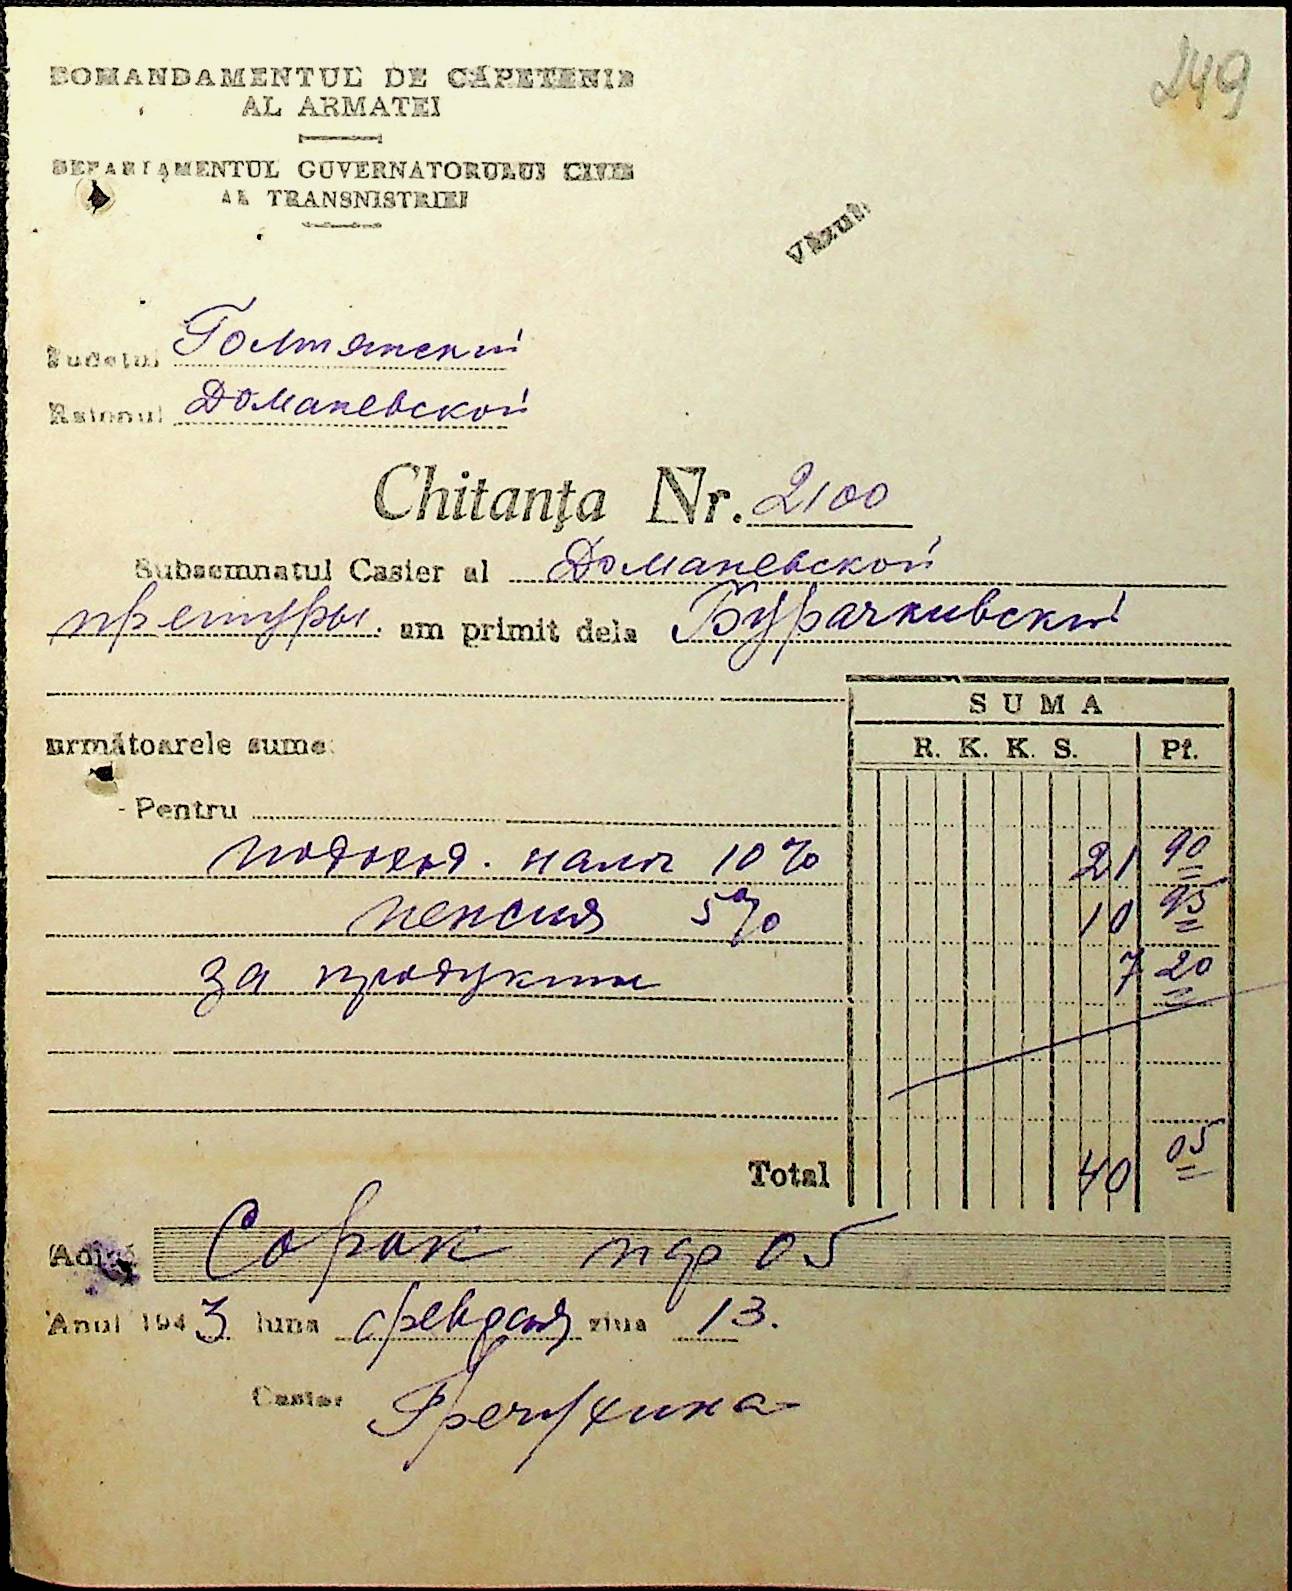 249
COMANDAMENTUL DE CĂPETENIE
AL ARMATEI
DEPARTAMENTUL GUVERNATORULUI CIVIL
AL TRANSNISTRIEI
Văzut
Județul Голтянский
Raionul Доманевской
Chitanța Nr. 2100
Subsemnatul Casier al Доманевской
претуры. am primit dela Бурачкивский
SUMA
următoarele sume:
R. K. K. S. Pf.
- Pentru
подоход. налог 10% 21 90
пенсия 5% 10 95
за продукты 7 20
Total 40 05
Adică Сорок 05
Anul 1943 luna февраля ziua 13.
Casier